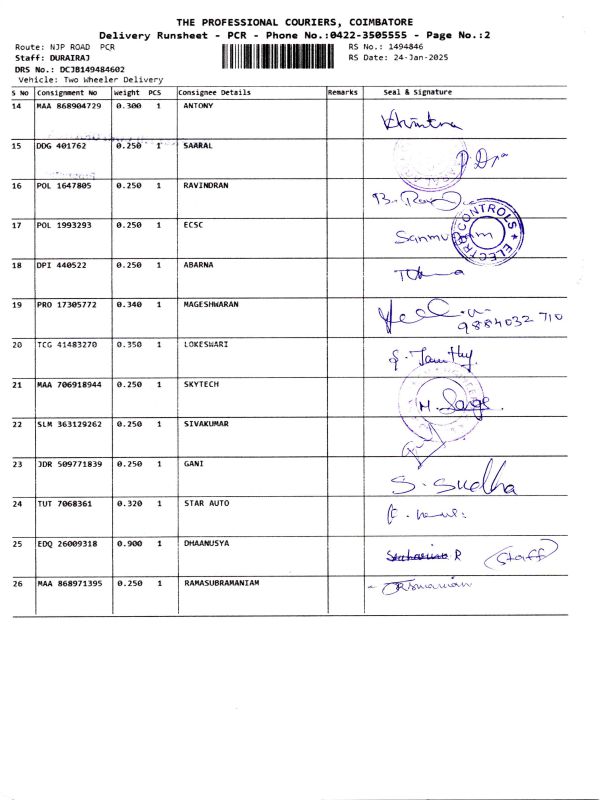 THE PROFESSIONAL COURIERS, COIMBATORE
Delivery Runsheet - PCR - Phone No.:0422-3505555 - Page No.:2
Route: NJP ROAD PCR RS No.: 1494846
Staff: DURAIRAJ RS Date: 24-Jan-2025
DRS No.: DCJB149484602
Vehicle: Two Wheeler Delivery
S No Consignment No Weight PCS Consignee Details Remarks Seal & Signature
14 MAA 868904729 0.300 1 ANTONY
15 DDG 401762 0.250 1 SAARAL
16 POL 1647805 0.250 1 RAVINDRAN
17 POL 1993293 0.250 1 ECSC
CONTROLS ★ ELECTRO
18 DPI 440522 0.250 1 ABARNA
19 PRO 17305772 0.340 1 MAGESHWARAN
9884032 710
20 TCG 41483270 0.350 1 LOKESWARI
21 MAA 706918944 0.250 1 SKYTECH
22 SLM 363129262 0.250 1 SIVAKUMAR
23 JDR 509771839 0.250 1 GANI S. Sudha
24 TUT 7068361 0.320 1 STAR AUTO
25 EDQ 26009318 0.900 1 DHAANUSYA R (Staff)
26 MAA 868971395 0.250 1 RAMASUBRAMANIAM